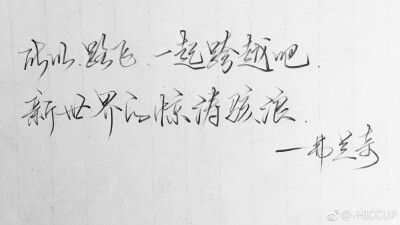 所以.路飞.一起跨越吧.
新世界的惊涛骇浪.
—弗兰奇
@-HICCUP